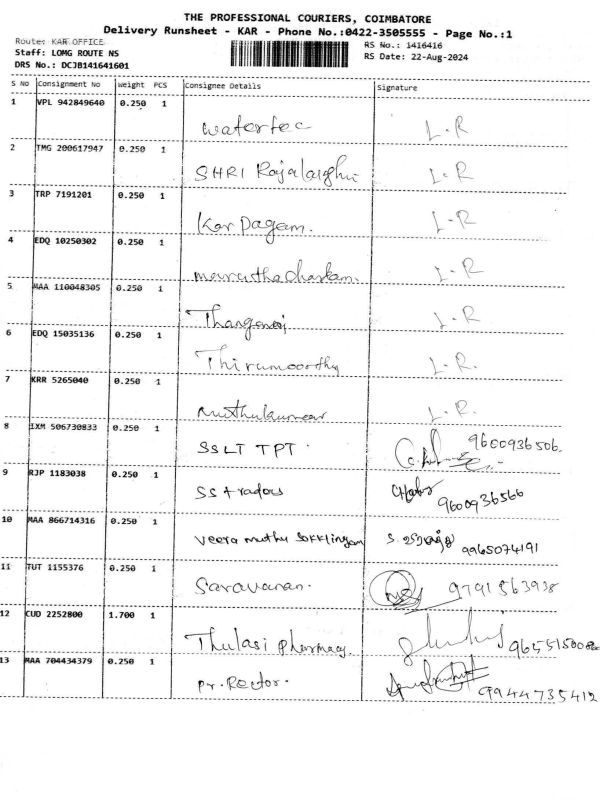 THE PROFESSIONAL COURIERS, COIMBATORE
Delivery Runsheet - KAR - Phone No.:0422-3505555 - Page No.:1
Route: KAR OFFICE RS No.: 1416416
Staff: LOMG ROUTE NS RS Date: 22-Aug-2024
DRS No.: DCJB141641601
S No Consignment No Weight PCS Consignee Details Signature
1 VPL 942849640 0.250 1
watertec L.R
2 TMG 200617947 0.250 1
SHRI L.R
3 TRP 7191201 0.250 1
Karpagam. L.R
4 EDQ 10250302 0.250 1
L.R
5 MAA 110048305 0.250 1
L.R
6 EDQ 15035136 0.250 1
Thirumoorthy L.R.
7 KRR 5265040 0.250 1
Muthukumar L.R.
8 IXM 506730833 0.250 1
SSLT TPT. 9600936506.
9 RJP 1183038 0.250 1
SS traders 9600936566
10 MAA 866714316 0.250 1
Veera muthu sokklingam 9965074191
11 TUT 1155376 0.250 1
Saravanan. 9791563938
12 CUD 2252800 1.700 1
Thulasi pharmacy.
13 MAA 704434379 0.250 1
Pr. Rector. 9944735412